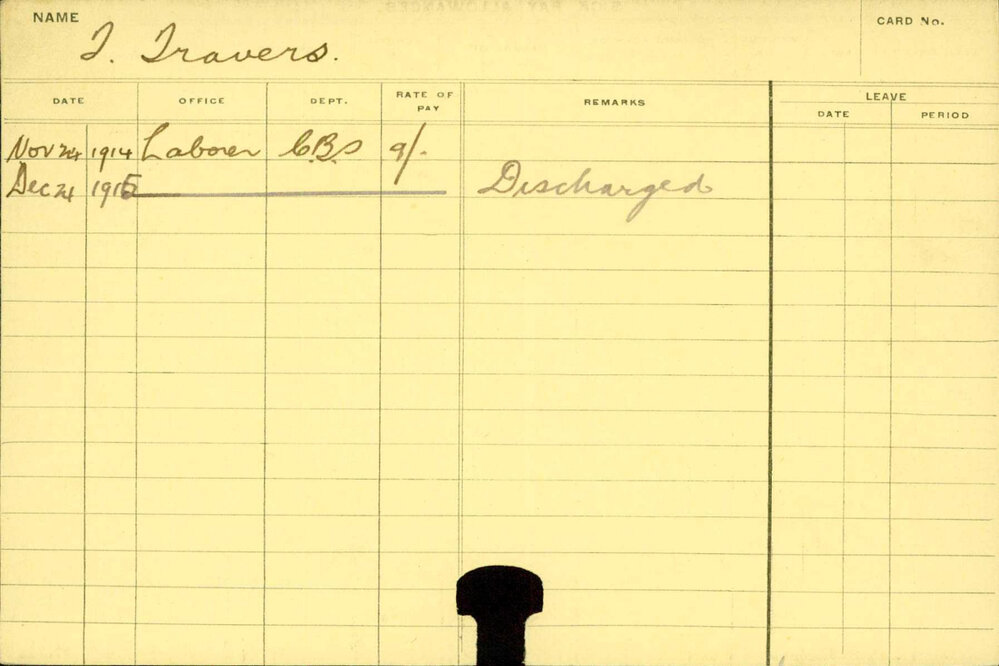 NAME T. Travers. CARD No.
DATE OFFICE DEPT. RATE OF PAY REMARKS LEAVE
DATE PERIOD
Nov 24 1914 Laborer C.B.S 9/-
Dec 21 1915 Discharged